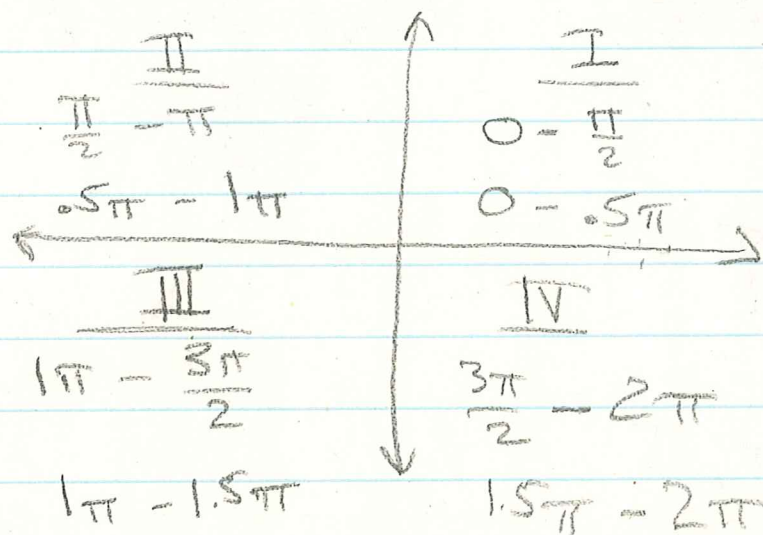 II
π/2 - π
.5π - 1π
I
0 - π/2
0 - .5π
III
1π - 3π/2
1π - 1.5π
IV
3π/2 - 2π
1.5π - 2π